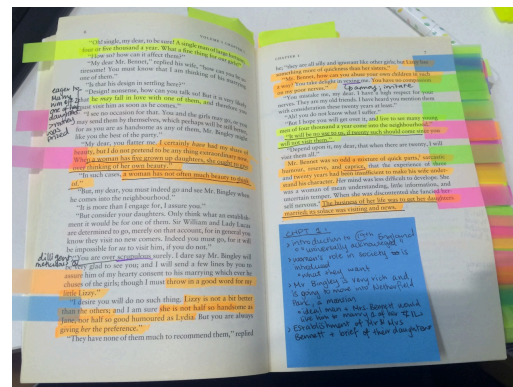 6
VOLUME I CHAPTER I
"Oh! single, my dear, to be sure! A single man of large fortune;
four or five thousand a year. What a fine thing for our girls!"
"How so? how can it affect them?"
"My dear Mr. Bennet," replied his wife, "how can you be so
tiresome! You must know that I am thinking of his marrying
one of them."
"Is that his design in settling here?"
"Design! nonsense, how can you talk so! But it is very likely
that he may fall in love with one of them, and therefore you
must visit him as soon as he comes."
"I see no occasion for that. You and the girls may go, or you
may send them by themselves, which perhaps will be still better,
for as you are as handsome as any of them, Mr. Bingley might
like you the best of the party."
"My dear, you flatter me. I certainly have had my share of
beauty, but I do not pretend to be any thing extraordinary now.
When a woman has five grown up daughters, she ought to give
over thinking of her own beauty."
"In such cases, a woman has not often much beauty to think
of."
"But, my dear, you must indeed go and see Mr. Bingley when
he comes into the neighbourhood."
"It is more than I engage for, I assure you."
"But consider your daughters. Only think what an establish-
ment it would be for one of them. Sir William and Lady Lucas
are determined to go, merely on that account, for in general you
know they visit no new comers. Indeed you must go, for it will
be impossible for us to visit him, if you do not."
diligent
"You are over scrupulous surely. I dare say Mr. Bingley will
be very glad to see you; and I will send a few lines by you to
assure him of my hearty consent to his marrying which ever he
chuses of the girls; though I must throw in a good word for my
little Lizzy."
"I desire you will do no such thing. Lizzy is not a bit better
than the others; and I am sure she is not half so handsome as
Jane, nor half so good humoured as Lydia. But you are always
giving her the preference."
"They have none of them much to recommend them," replied
CHAPTER I
7
he; "they are all silly and ignorant like other girls; but Lizzy has
something more of quickness than her sisters."
"Mr. Bennet, how can you abuse your own children in such
a way? You take delight in vexing me. You have no compassion
on my poor nerves."
"You mistake me, my dear. I have a high respect for your
nerves. They are my old friends. I have heard you mention them
with consideration these twenty years at least."
"Ah! you do not know what I suffer."
"But I hope you will get over it, and live to see many young
men of four thousand a year come into the neighbourhood."
"It will be no use to us, if twenty such should come since you
will not visit them."
"Depend upon it, my dear, that when there are twenty, I will
visit them all."
Mr. Bennet was so odd a mixture of quick parts, sarcastic
humour, reserve, and caprice, that the experience of three
and twenty years had been insufficient to make his wife under-
stand his character. Her mind was less difficult to develope. She
was a woman of mean understanding, little information, and
uncertain temper. When she was discontented she fancied her-
self nervous. The business of her life was to get her daughters
married; its solace was visiting and news.
CHPT 1:
> introduction to C19th England
"universally acknowledged"
> woman's role in society is
introduced
> Mr Bingley is very rich and
is going to move and Netherfield
Park, a mansion
> Establishment of Mr & Mrs
Bennett + brief of their daughters